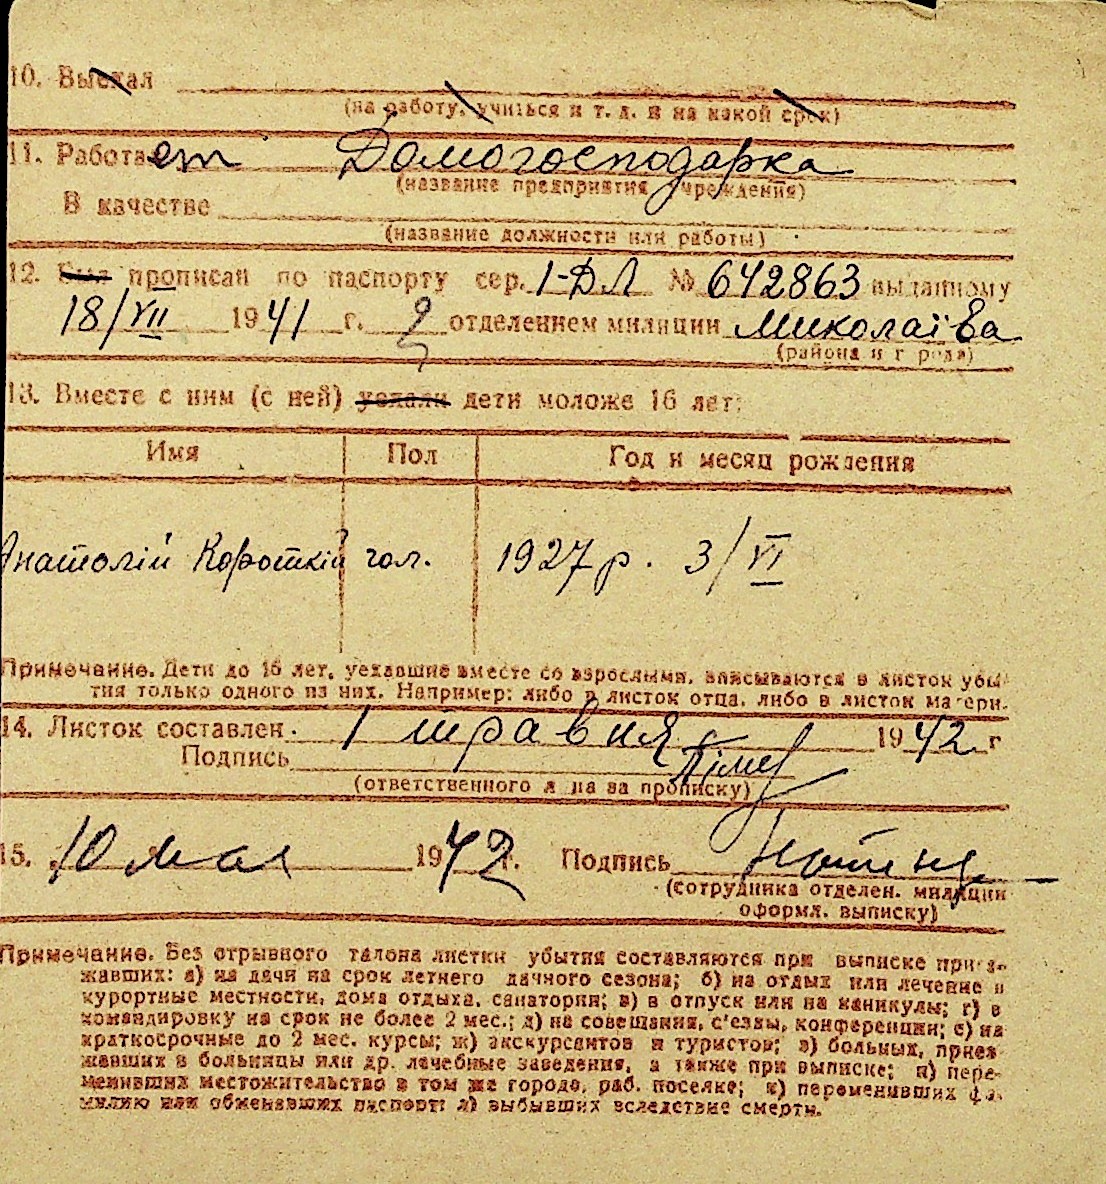 10. Выехал
(на работу, учиться и т. д. и на какой срок)
11. Работает Домогосподарка
(название предприятия учреждения)
В качестве
(название должности или работы)
12. Был прописан по паспорту сер. 1-ДЛ № 642863 выданному
18/VII 1941 г. 2 отделением милиции Миколаїва
(района и города)
13. Вместе с ним (с ней) уехали дети моложе 16 лет:
Имя Пол Год и месяц рождения
Анатолій Короткій чол. 1927 р. 3/VI
Примечание. Дети до 16 лет, уехавшие вместе со взрослыми, вписываются в листок убы-
тия только одного из них. Например: либо в листок отца, либо в листок матери.
14. Листок составлен 1 травня 1942 г
Подпись
(ответственного лица за прописку)
15. 10 мая 1942 г. Подпись
(сотрудника отделен. милиции
оформл. выписку)
Примечание. Без отрывного талона листки убытия составляются при выписке приез-
жавших: а) на дачи на срок летнего дачного сезона; б) на отдых или лечение в
курортные местности, дома отдыха, санатории; в) в отпуск или на каникулы; г) в
командировку на срок не более 2 мес.; д) на совещания, с'езды, конференции; е) на
краткосрочные до 2 мес. курсы; ж) экскурсантов и туристов; з) больных, приез-
жавших в больницы или др. лечебные заведения, а также при выписке; и) пере-
менивших местожительство в том же городе, раб. поселке; к) переменивших фа-
милию или обменявших паспорт; л) выбывших вследствие смерти.